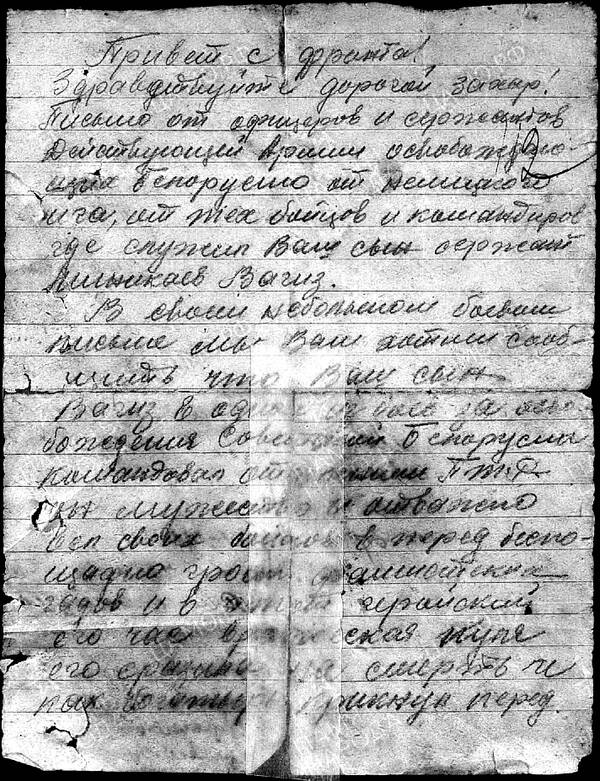 Привет с фронта!
Здравствуйте дорогой Захар!
Письмо от офицеров и сержантов
Действующей Армии освобождаю-
щих Белоруссию от немецкого
ига, от тех бойцов и командиров
где служил Ваш сын сержант
Вагиз.
В своем небольшом боевом
письме мы Вам хотим сооб-
щить что Ваш сын
Вагиз в одном из боев за осво-
бождения Советской Белоруссии
командовал ПТР
он мужество и отважно
вел своих бойцов в перед беспо-
щадно громя фашистских
гадов и в этот геройский
его час вражеская пуля
его сразила на смерть и
как крикнул перед